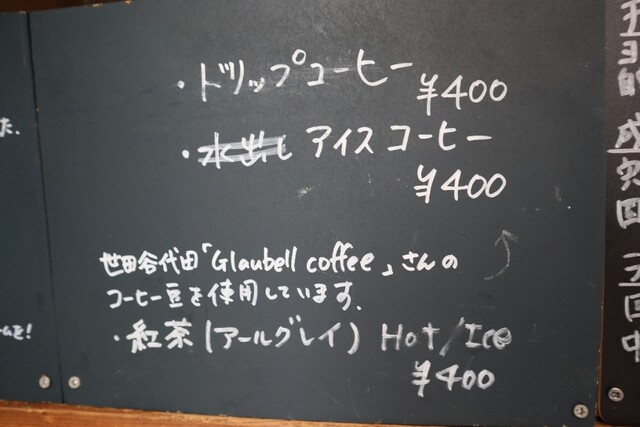 ・ドリップコーヒー
¥400
・水出し アイスコーヒー
¥400
世田谷代田「Glaubell coffee」さんの
コーヒー豆を使用しています.
・紅茶(アールグレイ) Hot/Ice
¥400
た.
ームを!